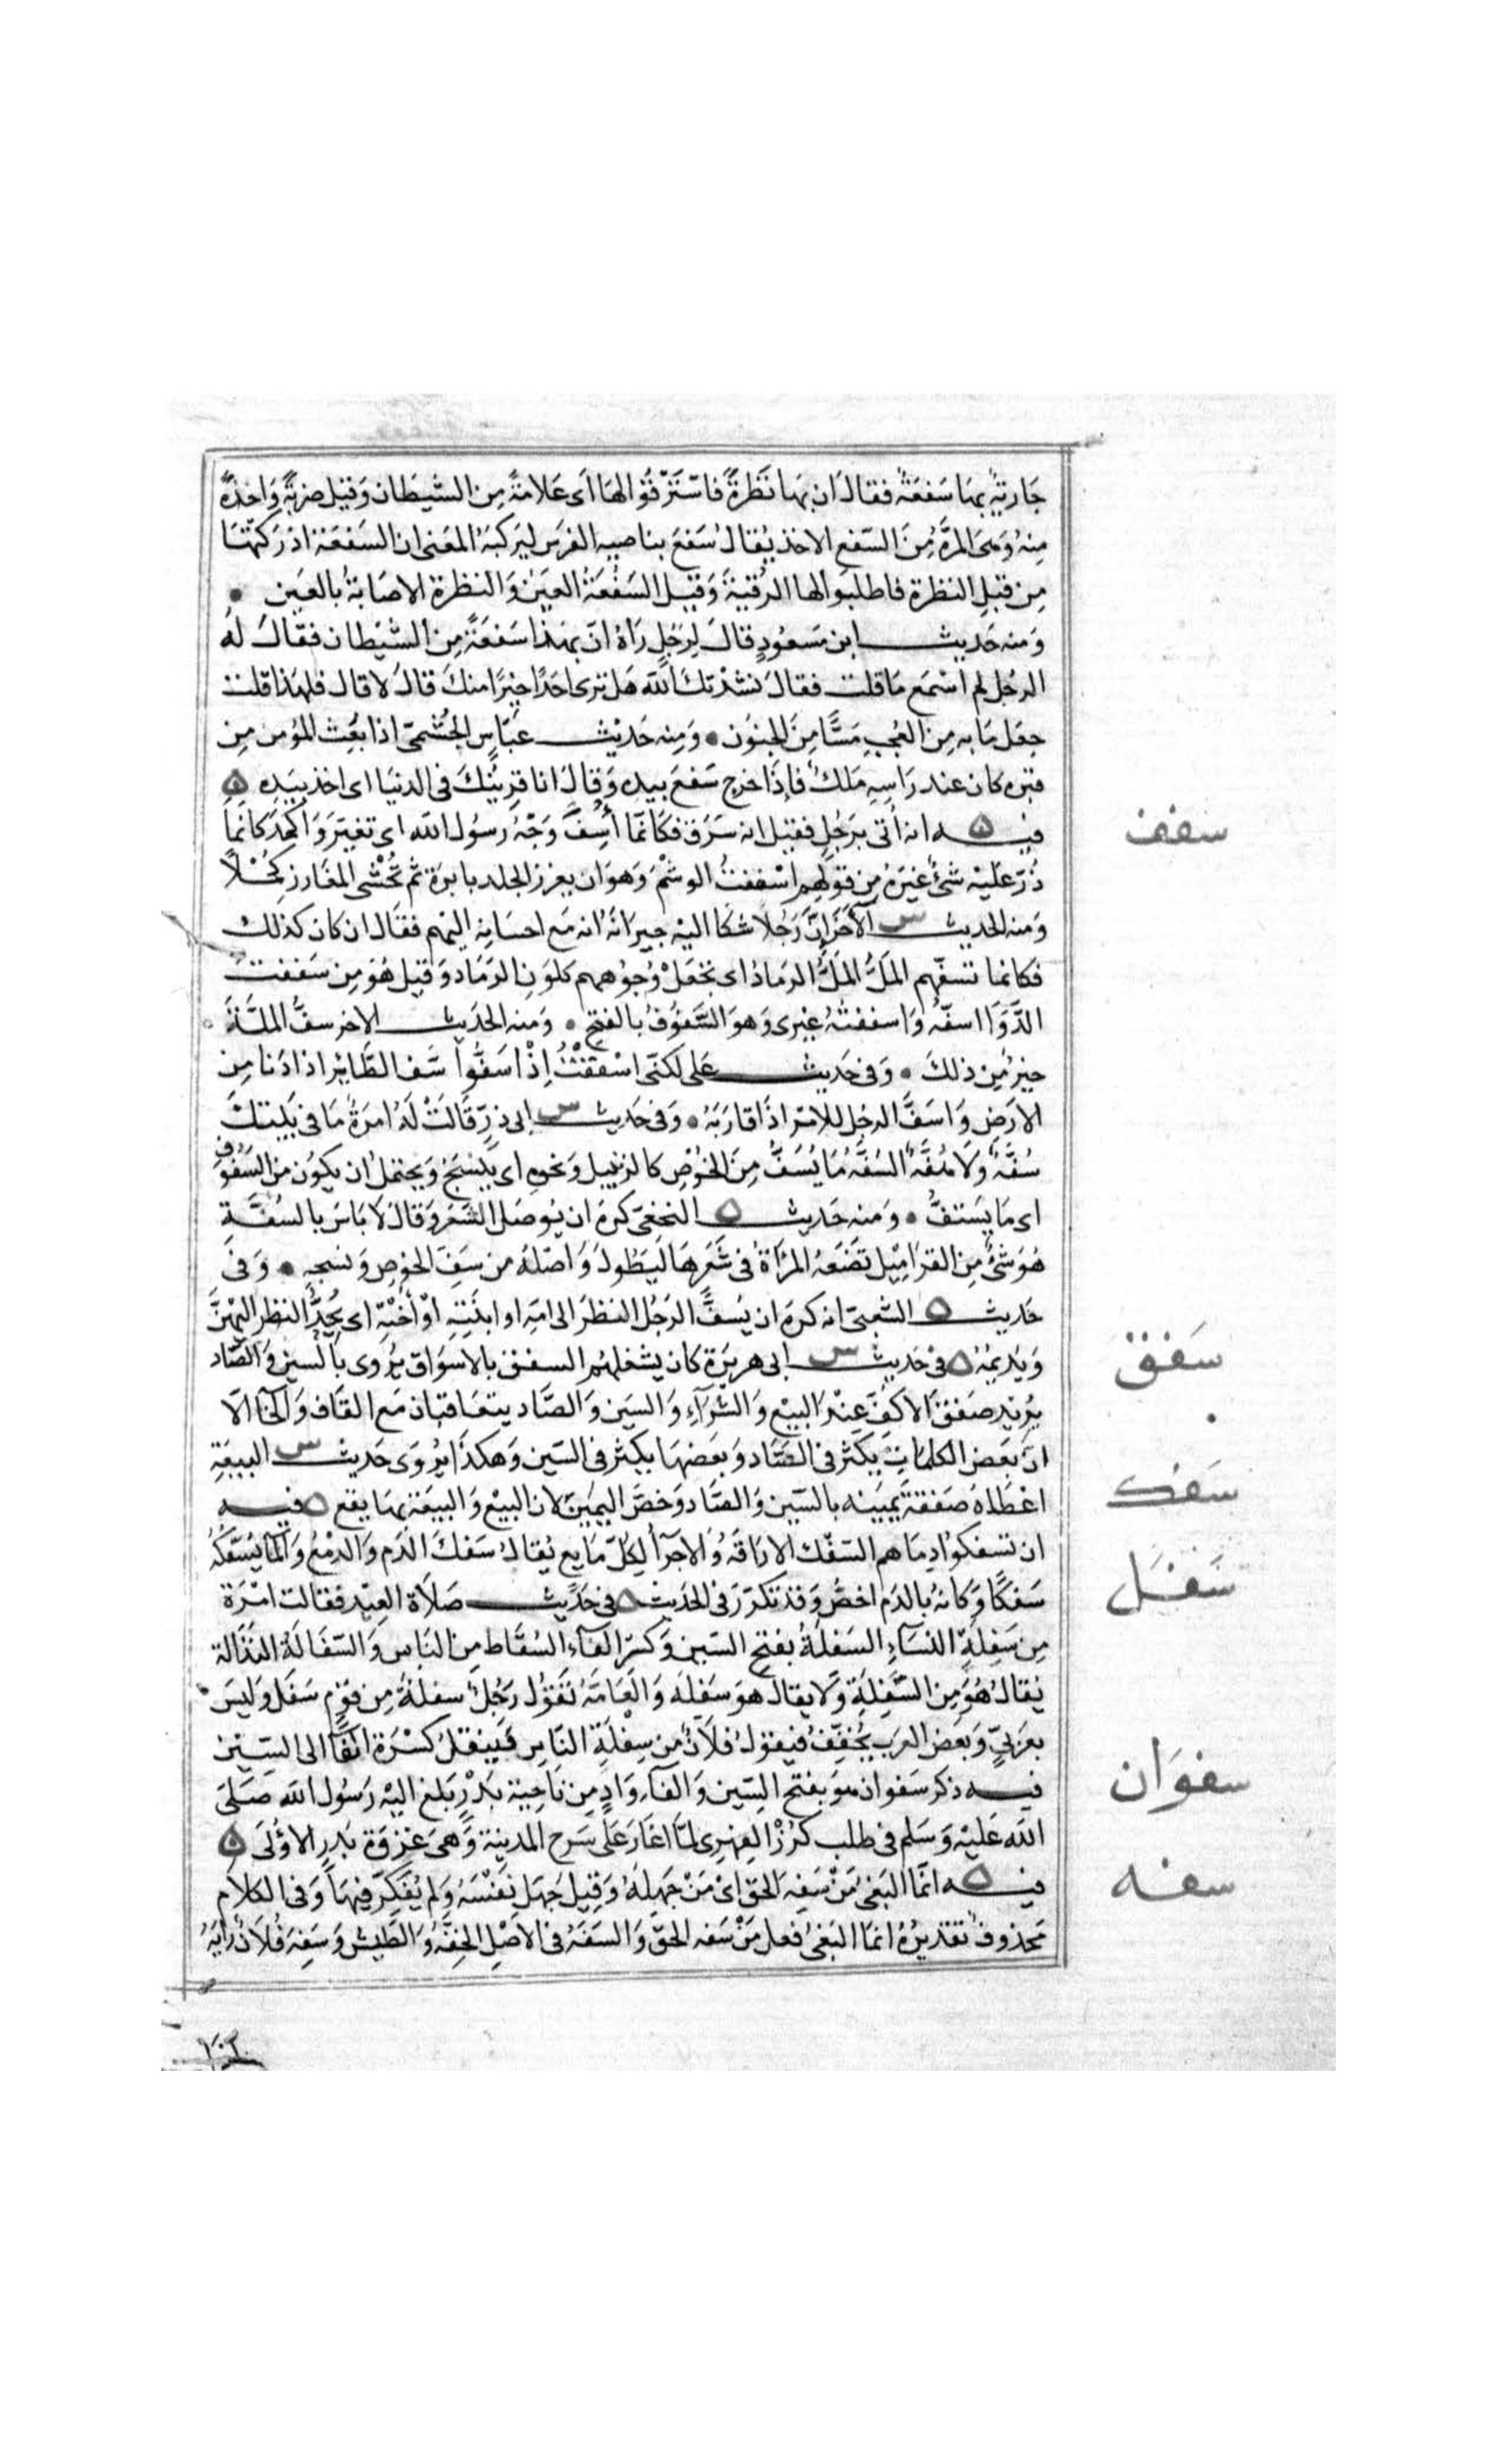 جارية بها سفعة فقال ان بها نظرة فاسترقوا لها اى علامة من الشيطان وقيل ضربة واحدة
منه وهى المرة من السفع الاخذ يقال سفع بناصيه الفرس ليركبه المعنى ان السفعة ادركتها
من قبل النظرة فاطلبوا لها الرقية وقيل السفعة العين والنظرة الاصابة بالعين •
ومنه حديث ابن مسعود قال لرجل راه ان بهذا سفعة من الشيطان فقال له
الرجل لم اسمع ما قلت فقال نشدتك الله هل ترى احدا خيرا منك قال لا قال فلهذا قلت
جعل ما به من العجب مسا من الجنون • ومنه حديث عباس الجشمى اذا بعث المؤمن من
قبره كان عند راسه ملك فاذا خرج سفع بيده وقال انا قرينك فى الدنيا اى اخذ بيده ه
سفف
فيه ه انه اتى برجل فقيل انه سرق فكانما أُسِفَّ وجه رسول الله اى تغير واكمد كانما
ذر عليه شئ غيره من قولهم اسففت الوشم وهو ان يغرز الجلد بابرة ثم تحشى المغارز كحلا
ومنه الحديث س الآخر ان رجلا شكا اليه جيرانه انه مع احسانه اليهم فقال ان كان كذلك
فكانما تسفهم المل المل الرماد اى تجعل وجوههم كلون الرماد وقيل هو من سففت
الدوا اسفه واسففته غيرى وهو السفوف بالفتح • ومنه الحديث الاخر سف الملة
خير من ذلك • وفى حديث على لكنى اسففت اذ اسفوا سف الطائر اذا دنا من
الارض واسف الرجل للامر اذا قاربه • وفى حديث س ابى ذر قالت له امرة ما فى بيتك
سفة ولا هفة السفة ما يسف من الخوص كالزنبيل ونحوه اى ينسج ويحتمل ان يكون من السفوف
اى ما يستف • ومنه حديث ه النخعى كره ان يوصل الشعر وقال لا باس بالسفة
هو شئ من القراميل تضعه المرأة فى شعرها ليطول واصله من سف الخوص ونسجه • وفى
حديث ه الشعبى انه كره ان يسف الرجل النظر الى امه او ابنته او أخته اى يحد النظر اليهن
سفق
ويديمه ه فى حديث س ابى هريرة كان يشغلهم السفق بالاسواق يروى بالسين والصاد
يريد صفق الاكف عند البيع والشراء والسين والصاد يتعاقبان مع القاف والخا الا
ان بعض الكلمات يكثر فى الصاد وبعضها يكثر فى السين وهكذا يروى حديث س البيعة
سفك
اعطاه صفقة يمينه بالسين والصاد وخص اليمين لان البيع والبيعة بها يقع ه فيه
ان تسفكوا دماهم السفك الاراقة والاجرآ لكل مايع يقال سفك الدم والدمع والما يسفكه
سفل
سفكا وكانه بالدم اخص وقد تكرر فى الحديث ه فى حديث صلاة العيد فقالت امرة
من سفلة النسآء السفلة بفتح السين وكسر الفآء السقاط من الناس والسفالة النذالة
يقال هو من السفلة ولا يقال هو سفلة والعامة تقول رجل سفلة من قوم سفل وليس
بعربى وبعض العرب يخفف فيقول فلان من سفلة الناس فينقل كسرة الفا الى السين
سفوان
فيه ذكر سفوان هو بفتح السين والفآء واد من ناحية بدر بلغ اليه رسول الله صلى
الله عليه وسلم فى طلب كرز الفهرى لما اغار على سرح المدينة وهى غزوة بدر الاولى ه
سفه
فيه ه انما البغى من سفه الحق اى من جهله وقيل جهل نفسه ولم يفكر فيها وفى الكلام
محذوف تقديره انما البغى فعل من سفه الحق والسفه فى الاصل الخفة والطيش وسفه فلان رايه